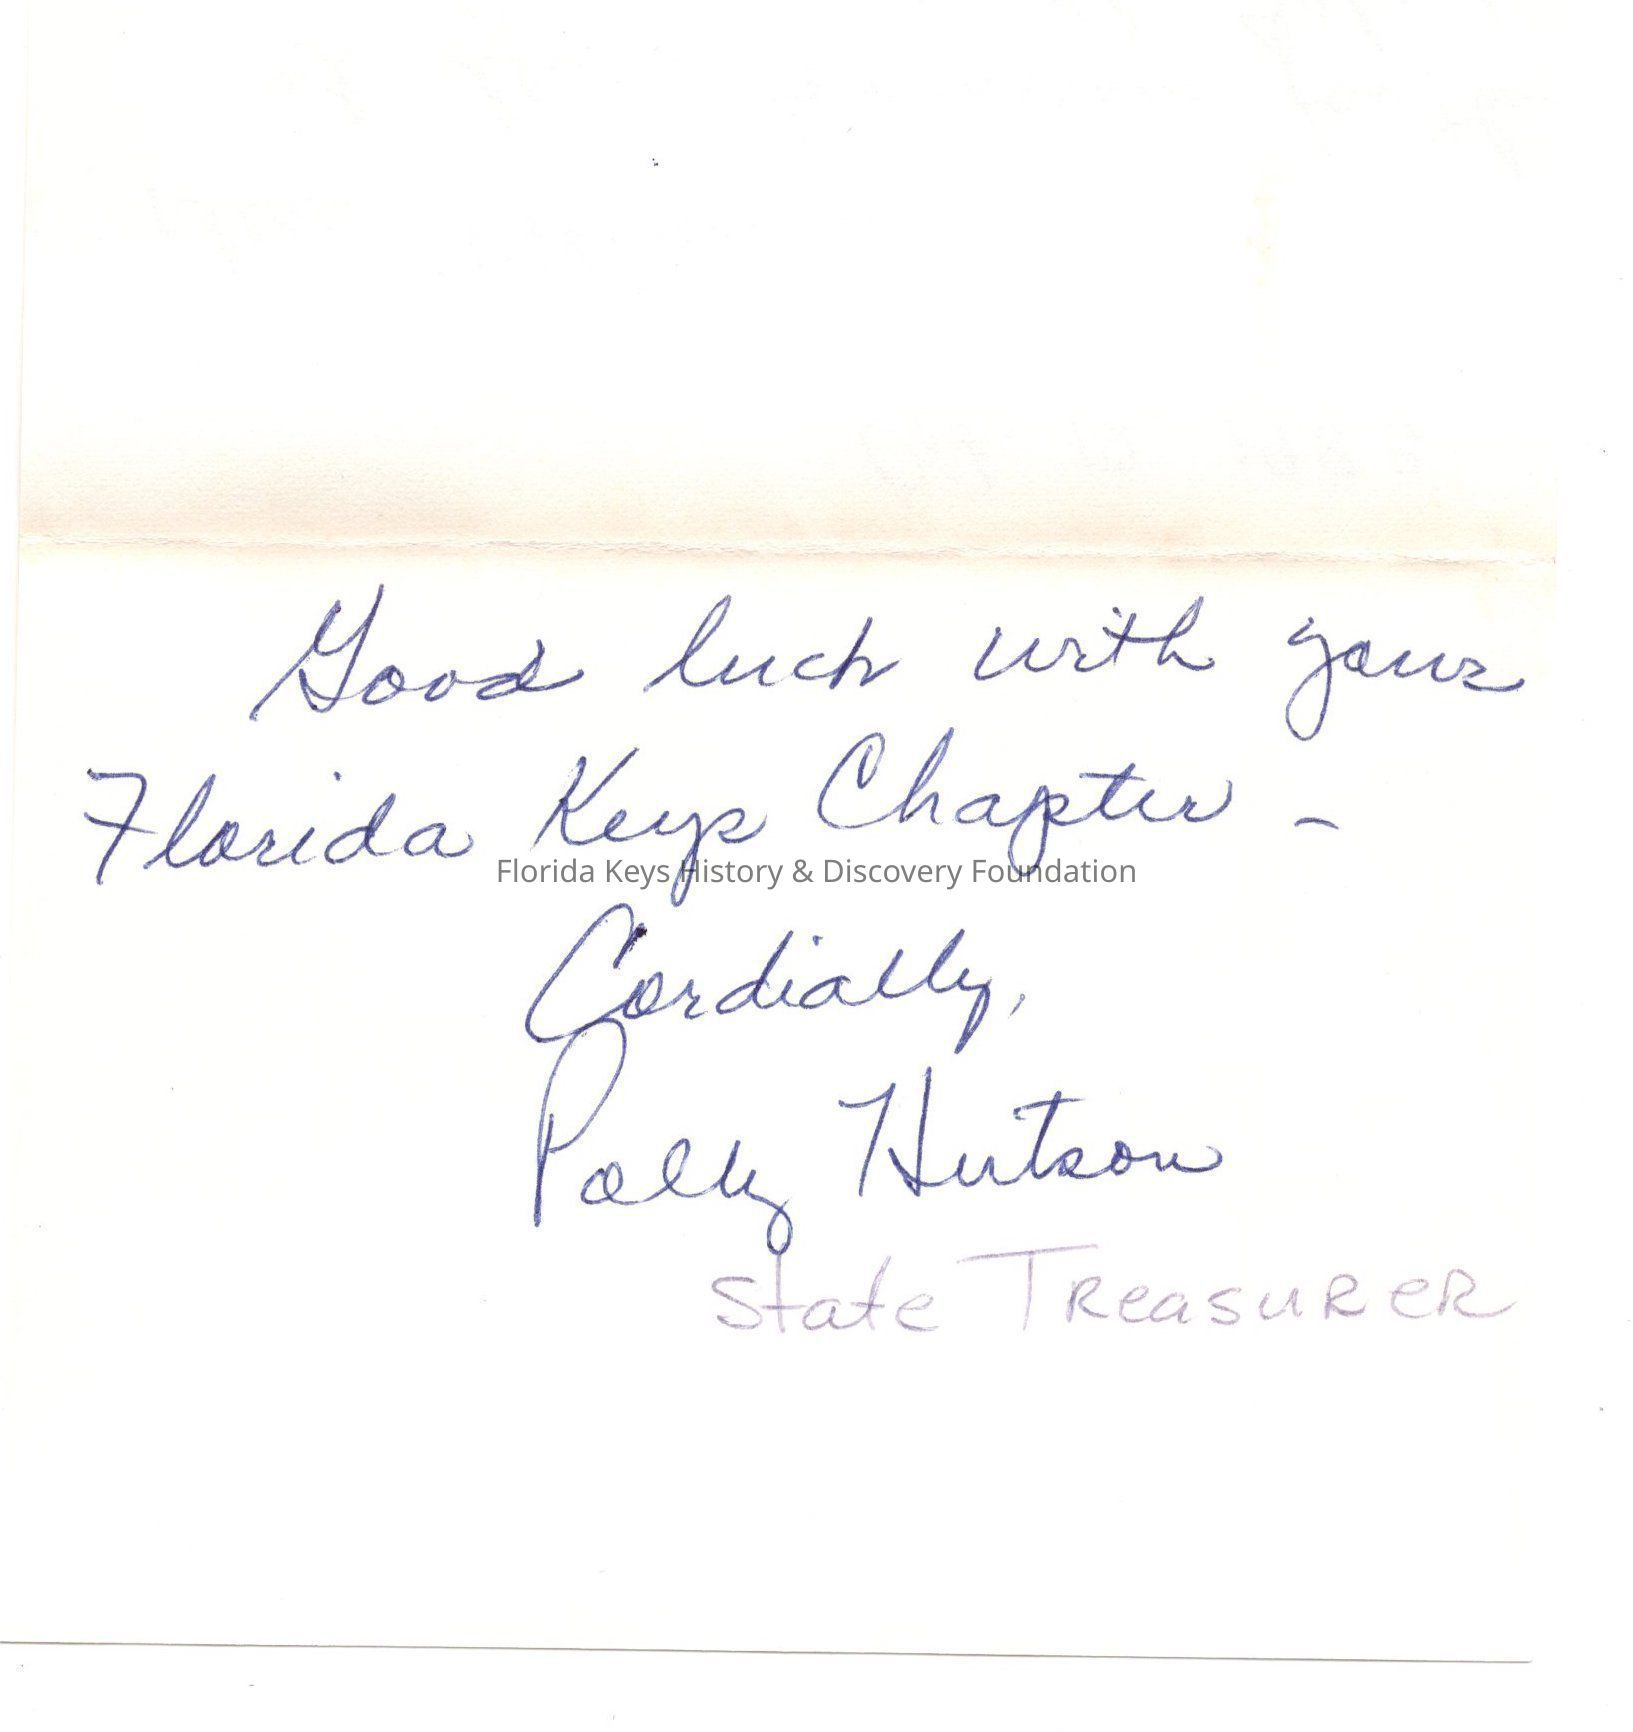 Good luck with your
Florida Keys Chapter –
Florida Keys History & Discovery Foundation
Cordially,
Polly Hutson
State Treasurer